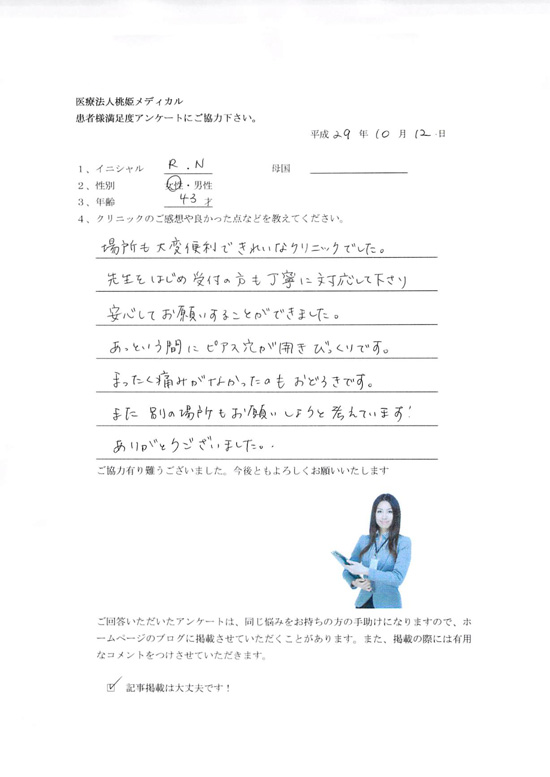 医療法人桃姫メディカル
患者様満足度アンケートにご協力下さい。
平成 29 年 10 月 12 日
1、イニシャル R.N 母国
2、性別 女性・男性
3、年齢 43 才
4、クリニックのご感想や良かった点などを教えてください。
場所も大変便利できれいなクリニックでした。
先生をはじめ受付の方も丁寧に対応して下さり
安心してお願いすることができました。
あっという間にピアス穴が開きびっくりです。
まったく痛みがなかったのもおどろきです。
また別の場所もお願いしようと考えています!
ありがとうございました。
ご協力有り難うございました。今後ともよろしくお願いいたします
ご回答いただいたアンケートは、同じ悩みをお持ちの方の手助けになりますので、ホ
ームページのブログに掲載させていただくことがあります。また、掲載の際には有用
なコメントをつけさせていただきます。
☑ 記事掲載は大丈夫です!